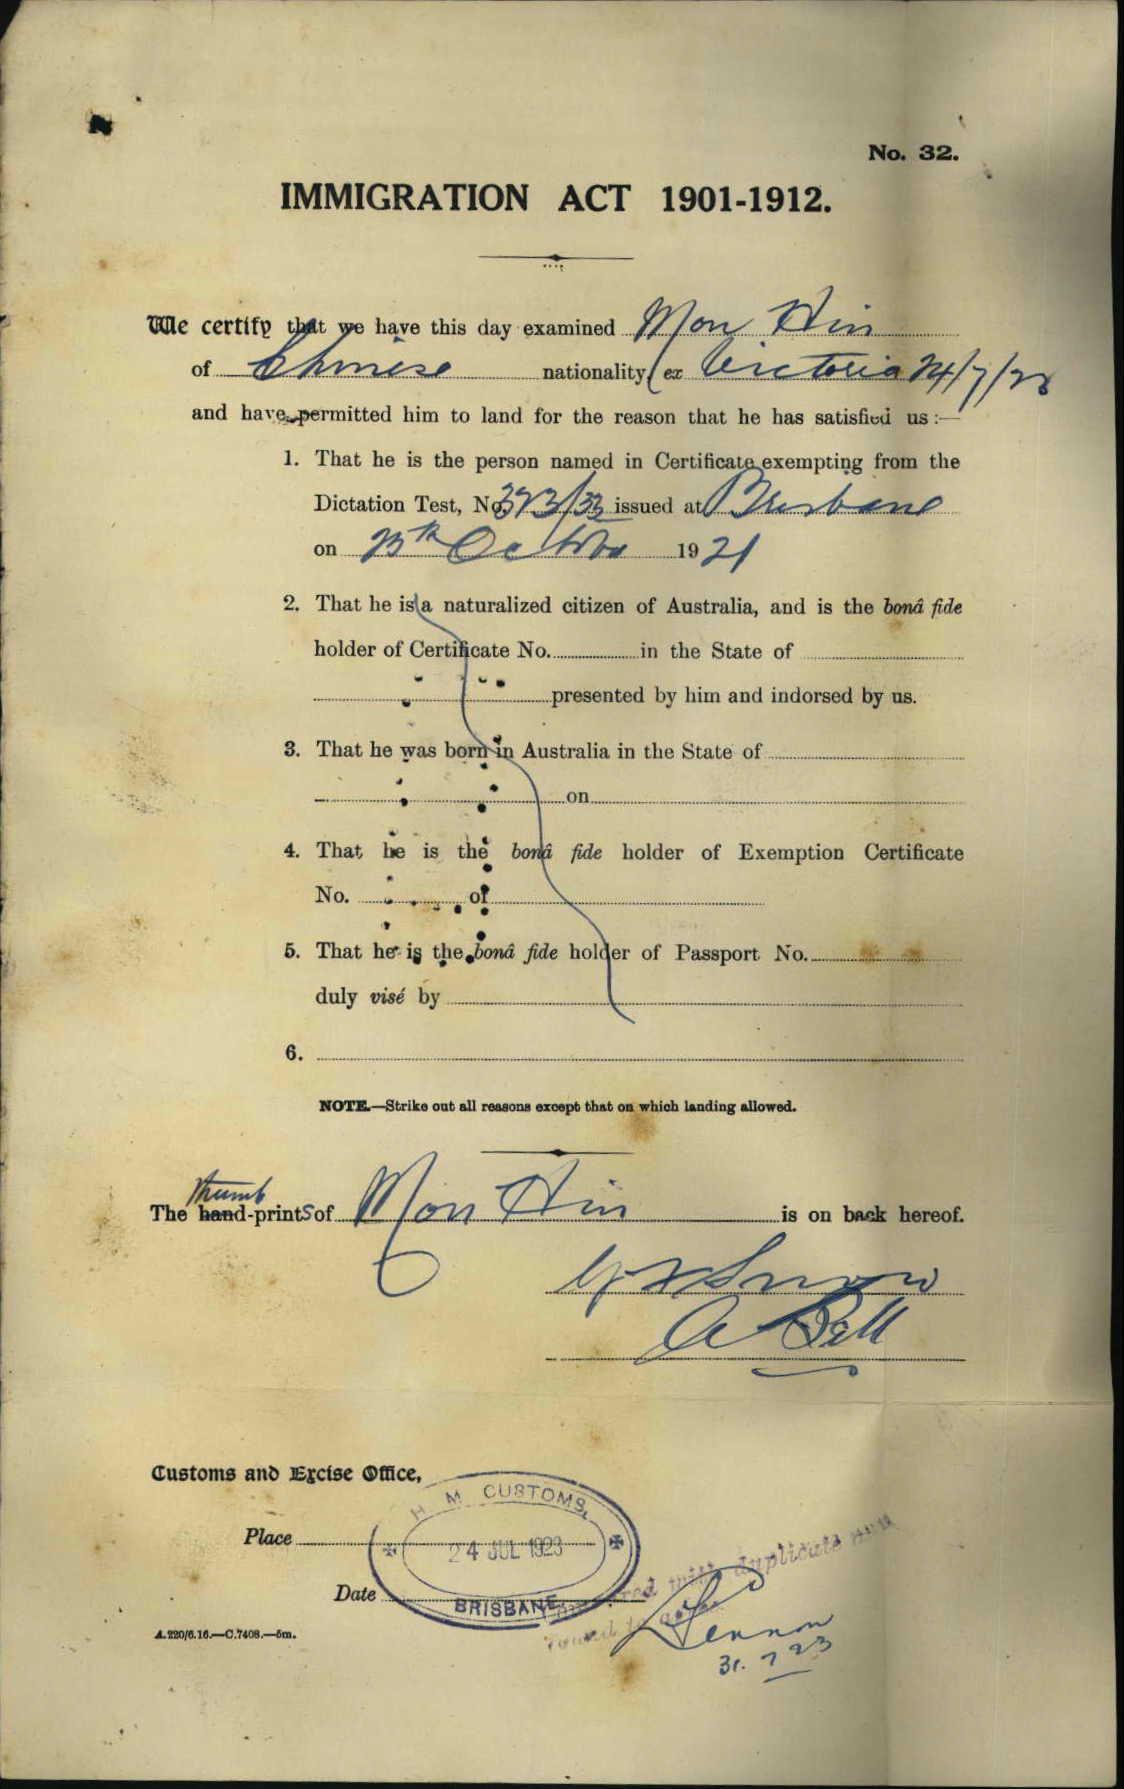 No. 32.
IMMIGRATION ACT 1901-1912.
We certify that we have this day examined Mon Hin
of Chinese nationality (ex Victoria 24/7/23
and have permitted him to land for the reason that he has satisfied us :—
1. That he is the person named in Certificate exempting from the
Dictation Test, No. 323/33 issued at Brisbane
on October 1921
2. That he is a naturalized citizen of Australia, and is the bonâ fide
holder of Certificate No. in the State of
presented by him and indorsed by us.
3. That he was born in Australia in the State of
on
4. That he is the bonâ fide holder of Exemption Certificate
No. of
5. That he is the bonâ fide holder of Passport No.
duly visé by
6.
NOTE.—Strike out all reasons except that on which landing allowed.
thumb
The hand-prints of Mon Hin is on back hereof.
A Bell
Customs and Excise Office,
H. M. CUSTOMS,
Place
24 JUL 1923
Date
BRISBANE
duplicate
Lennon
31.7.23
A.220/6.16.—C.7408.—5m.